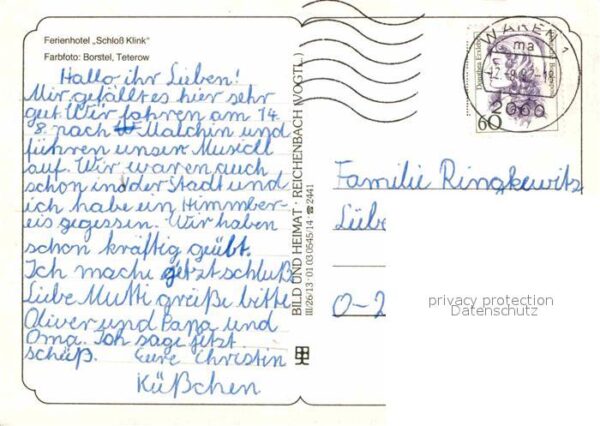 Ferienhotel „Schloß Klink"
Farbfoto: Borstel, Teterow
Hallo ihr Lieben!
Mir gefällt es hier sehr
gut. Wir fahren am 14.
8. nach Malchin und
führen unser Musicll
auf. Wir waren auch
schon in der Stadt und
ich habe ein Himmber-
eis gegessen. Wir haben
schon kräftig geübt.
Ich mache jetzt schluß.
Liebe Mutti grüße bitte
Oliver und Papa und
Oma. Ich sage jetzt
schüß. Eure Christin
Küßchen
BILD UND HEIMAT · REICHENBACH (VOGTL.)
III/26/13 · 01 03 0545/14 · ☎ 2441
WAREN 1
ma
2060
60
Familie Ringkewitz
Lübe
O-2
privacy protection
Datenschutz